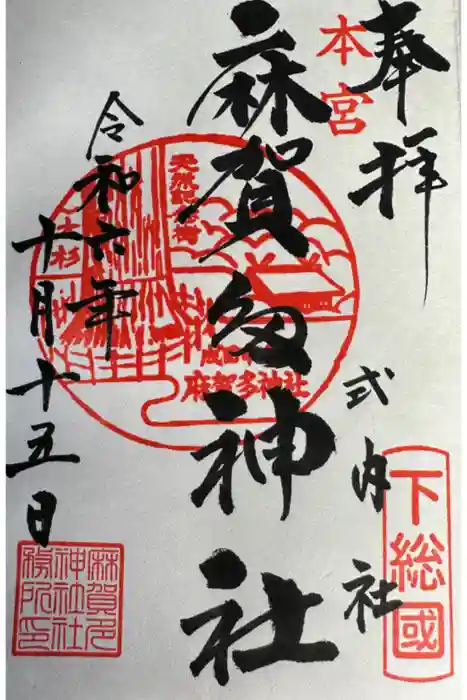 奉拝
本宮
式内社
下総國
麻賀多神社
天然記念物
大杉
成田市
麻賀多神社
令和六年
十月十五日
麻賀多
神社社
務所印